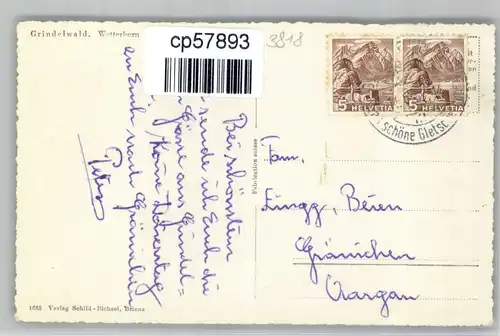 Grindelwald. Wetterhorn
cp57893
3818
5 HELVETIA
5 HELVETIA
schöne Gletsc
Bei schönstem
sende ich Euch die
Grüsse aus Grindel-
en Euch nach Gränichen
Peter
Fabrication suisse
Fam.
Lüngg, Beien
Gränichen
Aargau
1663 Verlag Schild-Bichsel, Brienz